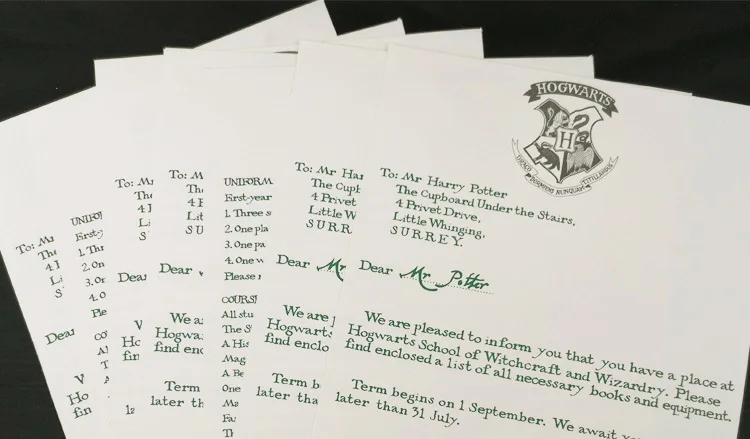 HOGWARTS
H
DRACO DORMIENS NUNQUAM TITILLANDUS
To: Mr Harry Potter
The Cupboard Under the Stairs,
4 Privet Drive,
Little Whinging,
SURREY.
Dear Mr Potter
We are pleased to inform you that you have a place at
Hogwarts School of Witchcraft and Wizardry. Please
find enclosed a list of all necessary books and equipment.
Term begins on 1 September. We await yo
later than 31 July.
To: Mr Har
The Cupb
4 Privet
Little W
SURR
Dear Mr
We are p
Hogwarts
find enclo
Term b
later tha
UNIFORM
First-year
1. Three s
2. One pla
3. One pa
4. One w
Please
COURS
All stu
The S
A His
Mag
A Be
One
Ma
Fa
Th
To: M
Th
4 P
Lit
SU
Dear
We a
Hogwa
find enc
Term
later th
To: Mr
The
4
Li
S
Dear
V
Ho
fin
la
UNIFO
First-y
1. Thr
2. On
3. On
4. O
Ple
CO
Al
T
To: Mr
The
4
Li
S
Dear
V
Ho
fin